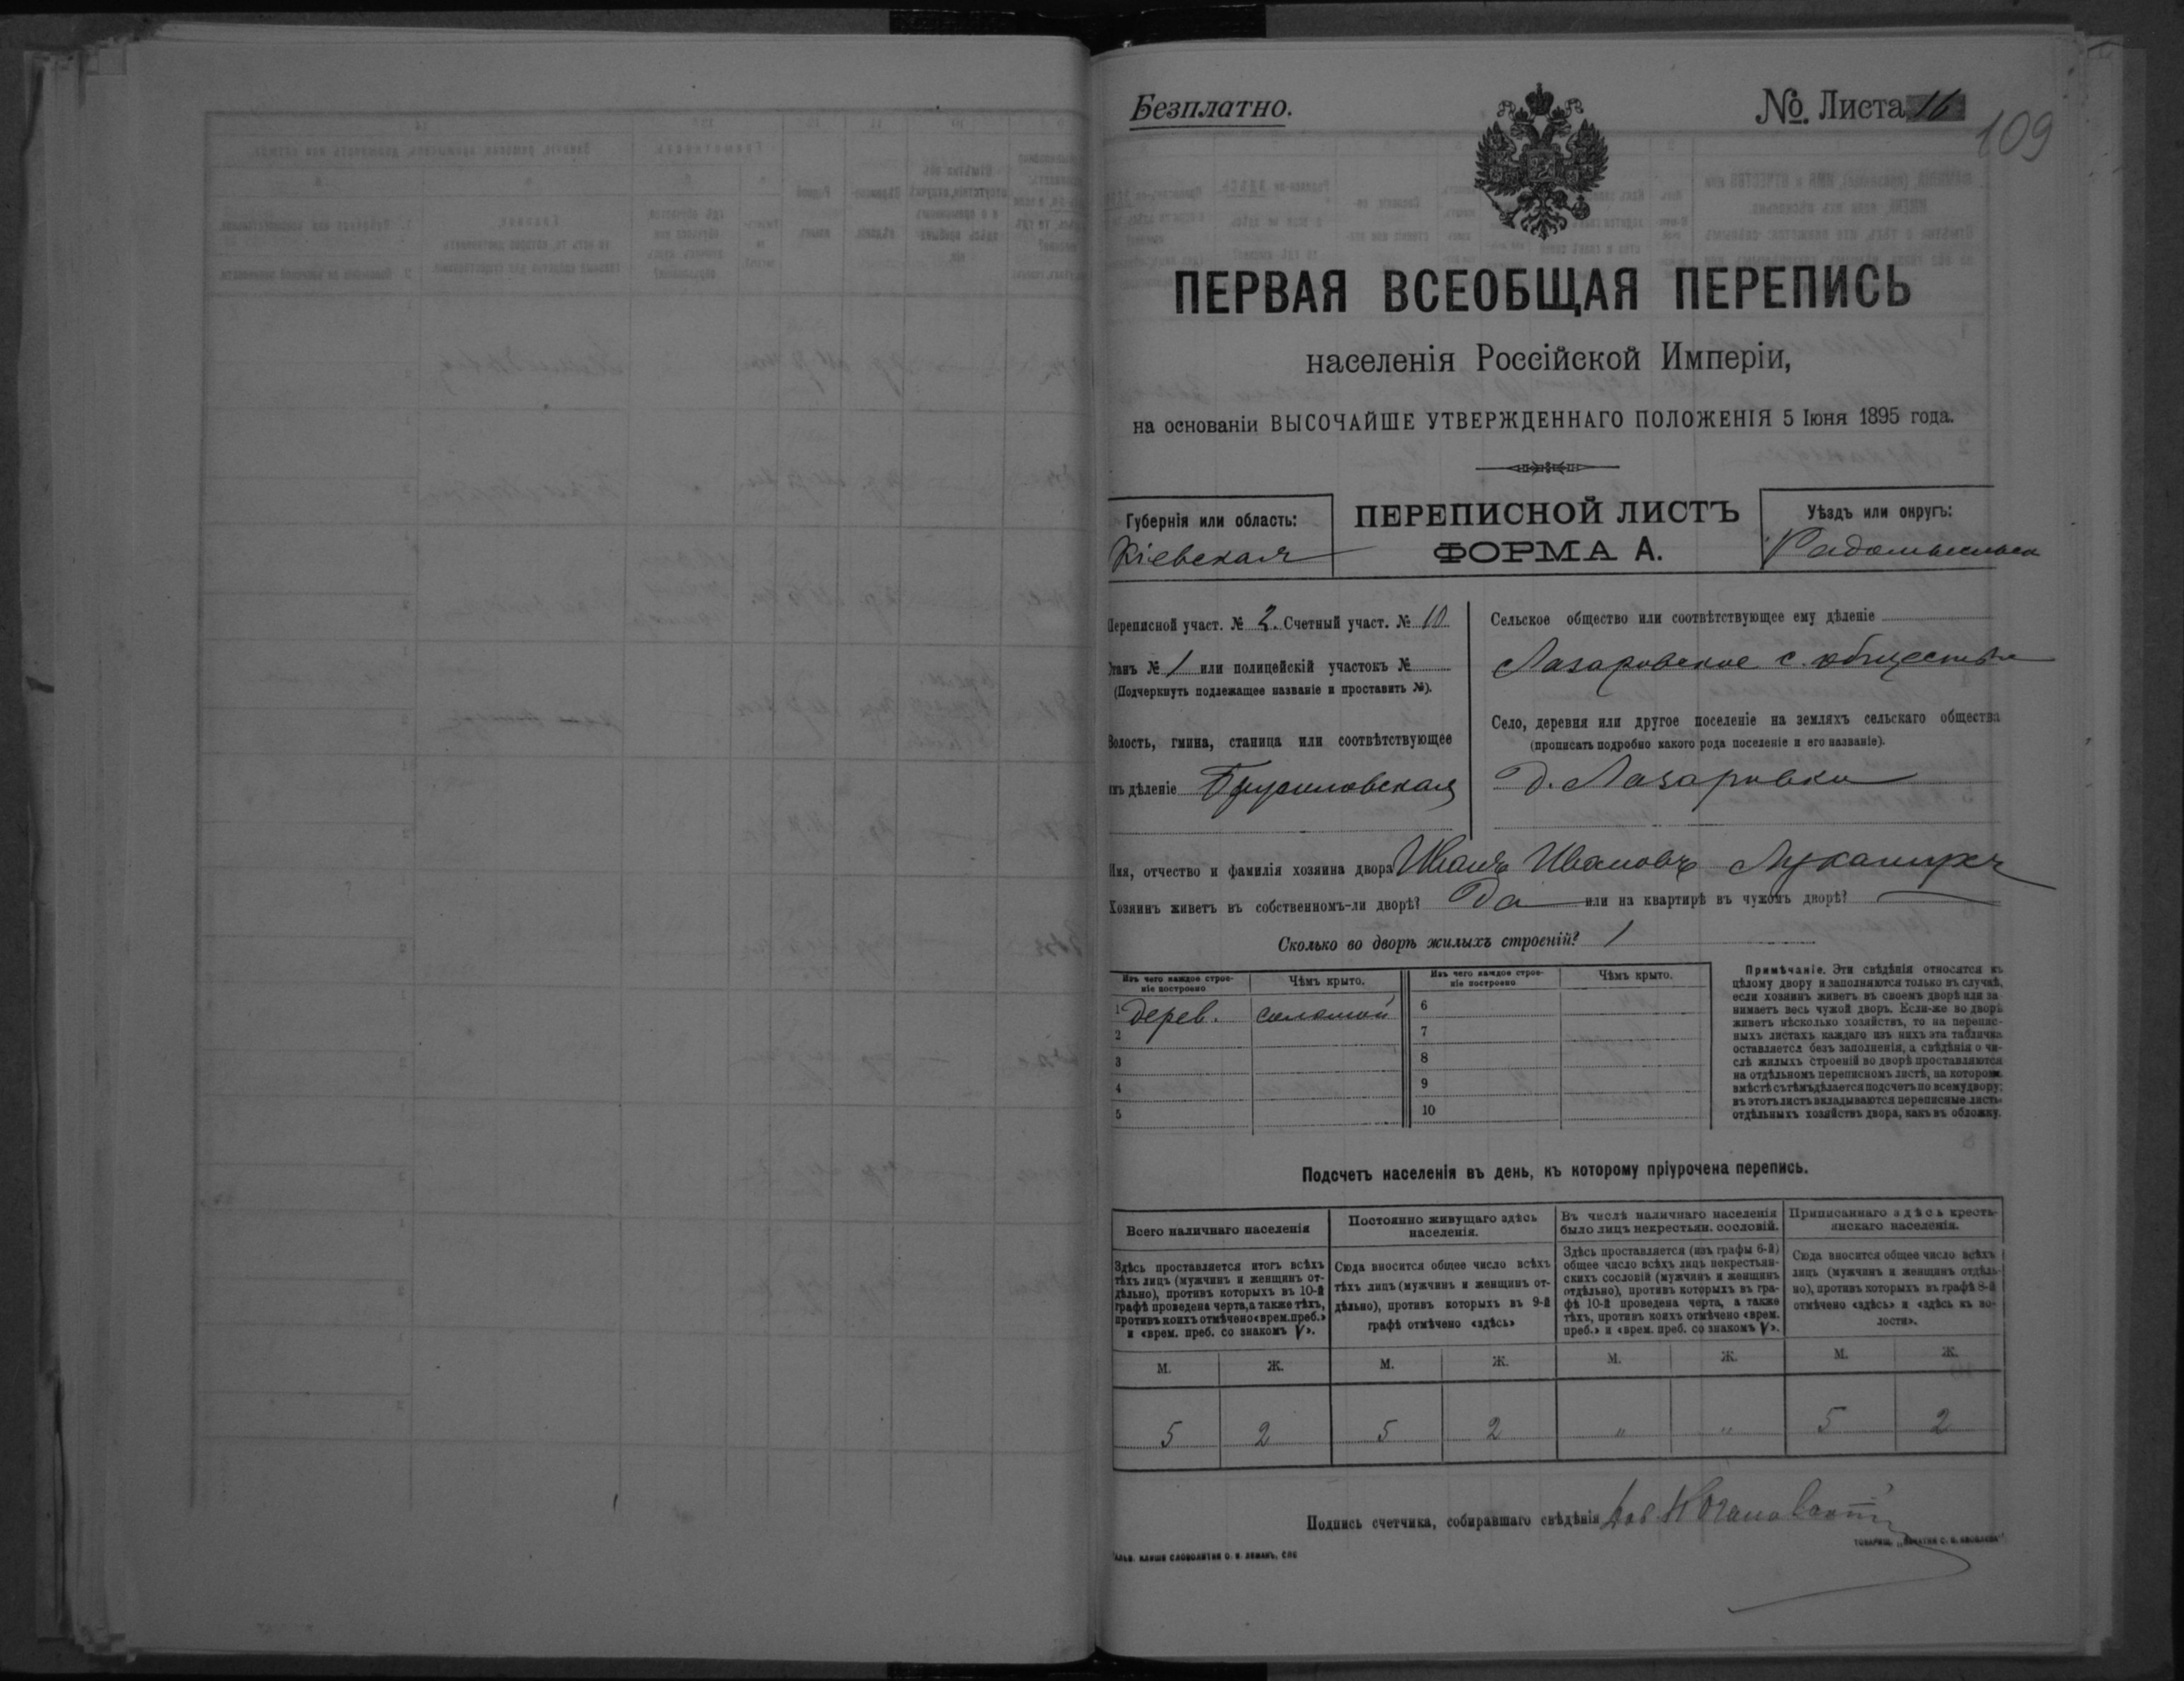 Безплатно.
No. Листа 16
109
ПЕРВАЯ ВСЕОБЩАЯ ПЕРЕПИСЬ
населенія Россійской Имперіи,
на основаніи ВЫСОЧАЙШЕ УТВЕРЖДЕННАГО ПОЛОЖЕНІЯ 5 Іюня 1895 года.
Губернія или область:
Кіевская
ПЕРЕПИСНОЙ ЛИСТЪ
ФОРМА А.
Уѣздъ или округъ:
Переписной участ. № 2. Счетный участ. № 10
Станъ № 1 или полицейскій участокъ №
(Подчеркнуть подлежащее названіе и проставить №).
Волость, гмина, станица или соотвѣтствующее
имъ дѣленіе Брусиловская
Сельское общество или соотвѣтствующее ему дѣленіе
Лазаровское с. общество
Село, деревня или другое поселеніе на земляхъ сельскаго общества
(прописать подробно какого рода поселеніе и его названіе).
д. Лазаровка
Имя, отчество и фамилія хозяина двора Иванъ Ивановъ
Хозяинъ живетъ въ собственномъ-ли дворѣ? Да или на квартирѣ въ чужомъ дворѣ?
Сколько во дворѣ жилыхъ строеній? 1
Изъ чего каждое строе-
ніе построено
Чѣмъ крыто.
Изъ чего каждое строе-
ніе построено
Чѣмъ крыто.
1 дерев. соломой
2
3
4
5
6
7
8
9
10
Примѣчаніе. Эти свѣдѣнія относятся къ
цѣлому двору и заполняются только въ случаѣ,
если хозяинъ живетъ въ своемъ дворѣ или за-
нимаетъ весь чужой дворъ. Если-же во дворѣ
живетъ нѣсколько хозяйствъ, то на перепис-
ныхъ листахъ каждаго изъ нихъ эта табличка
оставляется безъ заполненія, а свѣдѣнія о чи-
слѣ жилыхъ строеній во дворѣ проставляются
на отдѣльномъ переписномъ листѣ, на которомъ
вмѣстѣ съ тѣмъ дѣлается подсчетъ по всему двору;
въ этотъ листъ вкладываются переписные листы
отдѣльныхъ хозяйствъ двора, какъ въ обложку.
Подсчетъ населенія въ день, къ которому пріурочена перепись.
Всего наличнаго населенія
Здѣсь проставляется итогъ всѣхъ
тѣхъ лицъ (мужчинъ и женщинъ от-
дѣльно), противъ которыхъ въ 10-й
графѣ проведена черта, а также тѣхъ,
противъ коихъ отмѣчено «врем. преб.»
и «врем. преб. со знакомъ V».
Постоянно живущаго здѣсь
населенія.
Сюда вносится общее число всѣхъ
тѣхъ лицъ (мужчинъ и женщинъ от-
дѣльно), противъ которыхъ въ 9-й
графѣ отмѣчено «здѣсь»
Въ числѣ наличнаго населенія
было лицъ некрестьян. сословій.
Здѣсь проставляется (изъ графы 6-й)
общее число всѣхъ лицъ некрестьян-
скихъ сословій (мужчинъ и женщинъ
отдѣльно), противъ которыхъ въ гра-
фѣ 10-й проведена черта, а также
тѣхъ, противъ коихъ отмѣчено «врем.
преб.» и «врем. преб. со знакомъ V».
Приписаннаго здѣсь кресть-
янскаго населенія.
Сюда вносится общее число всѣхъ
лицъ (мужчинъ и женщинъ отдѣль-
но), противъ которыхъ въ графѣ 8-й
отмѣчено «здѣсь» и «здѣсь къ во-
лости».
М. Ж. М. Ж. М. Ж. М. Ж.
5 2 5 2 " " 5 2
Подпись счетчика, собиравшаго свѣдѣнія